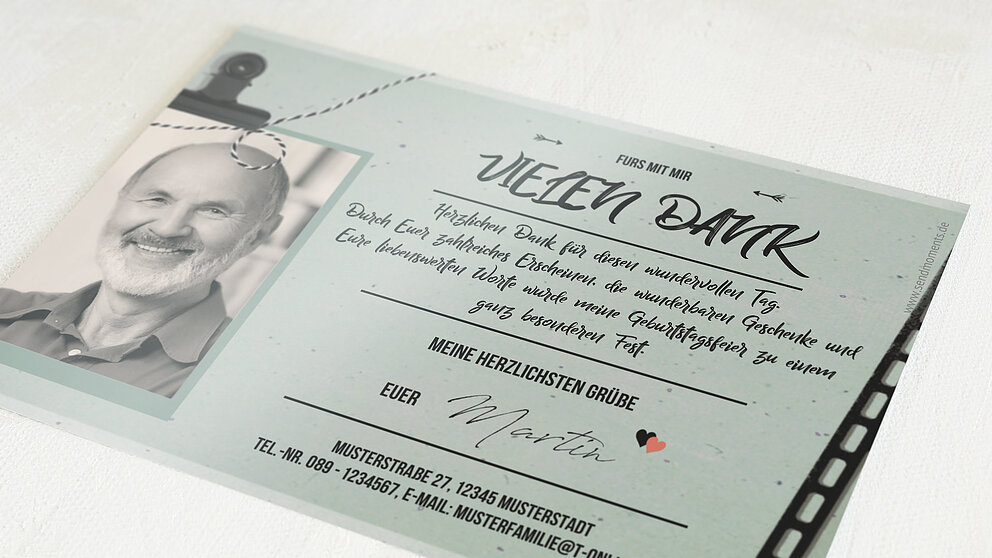 FÜRS MIT MIR
VIELEN DANK
Herzlichen Dank für diesen wundervollen Tag.
Durch Euer zahlreiches Erscheinen, die wunderbaren Geschenke und
Eure liebenswerten Worte wurde meine Geburtstagsfeier zu einem
ganz besonderen Fest.
MEINE HERZLICHSTEN GRÜßE
EUER Martin
MUSTERSTRAßE 27, 12345 MUSTERSTADT
TEL. -NR. 089 - 1234567, E-MAIL: MUSTERFAMILIE@T-ONL
www.sendmoments.de